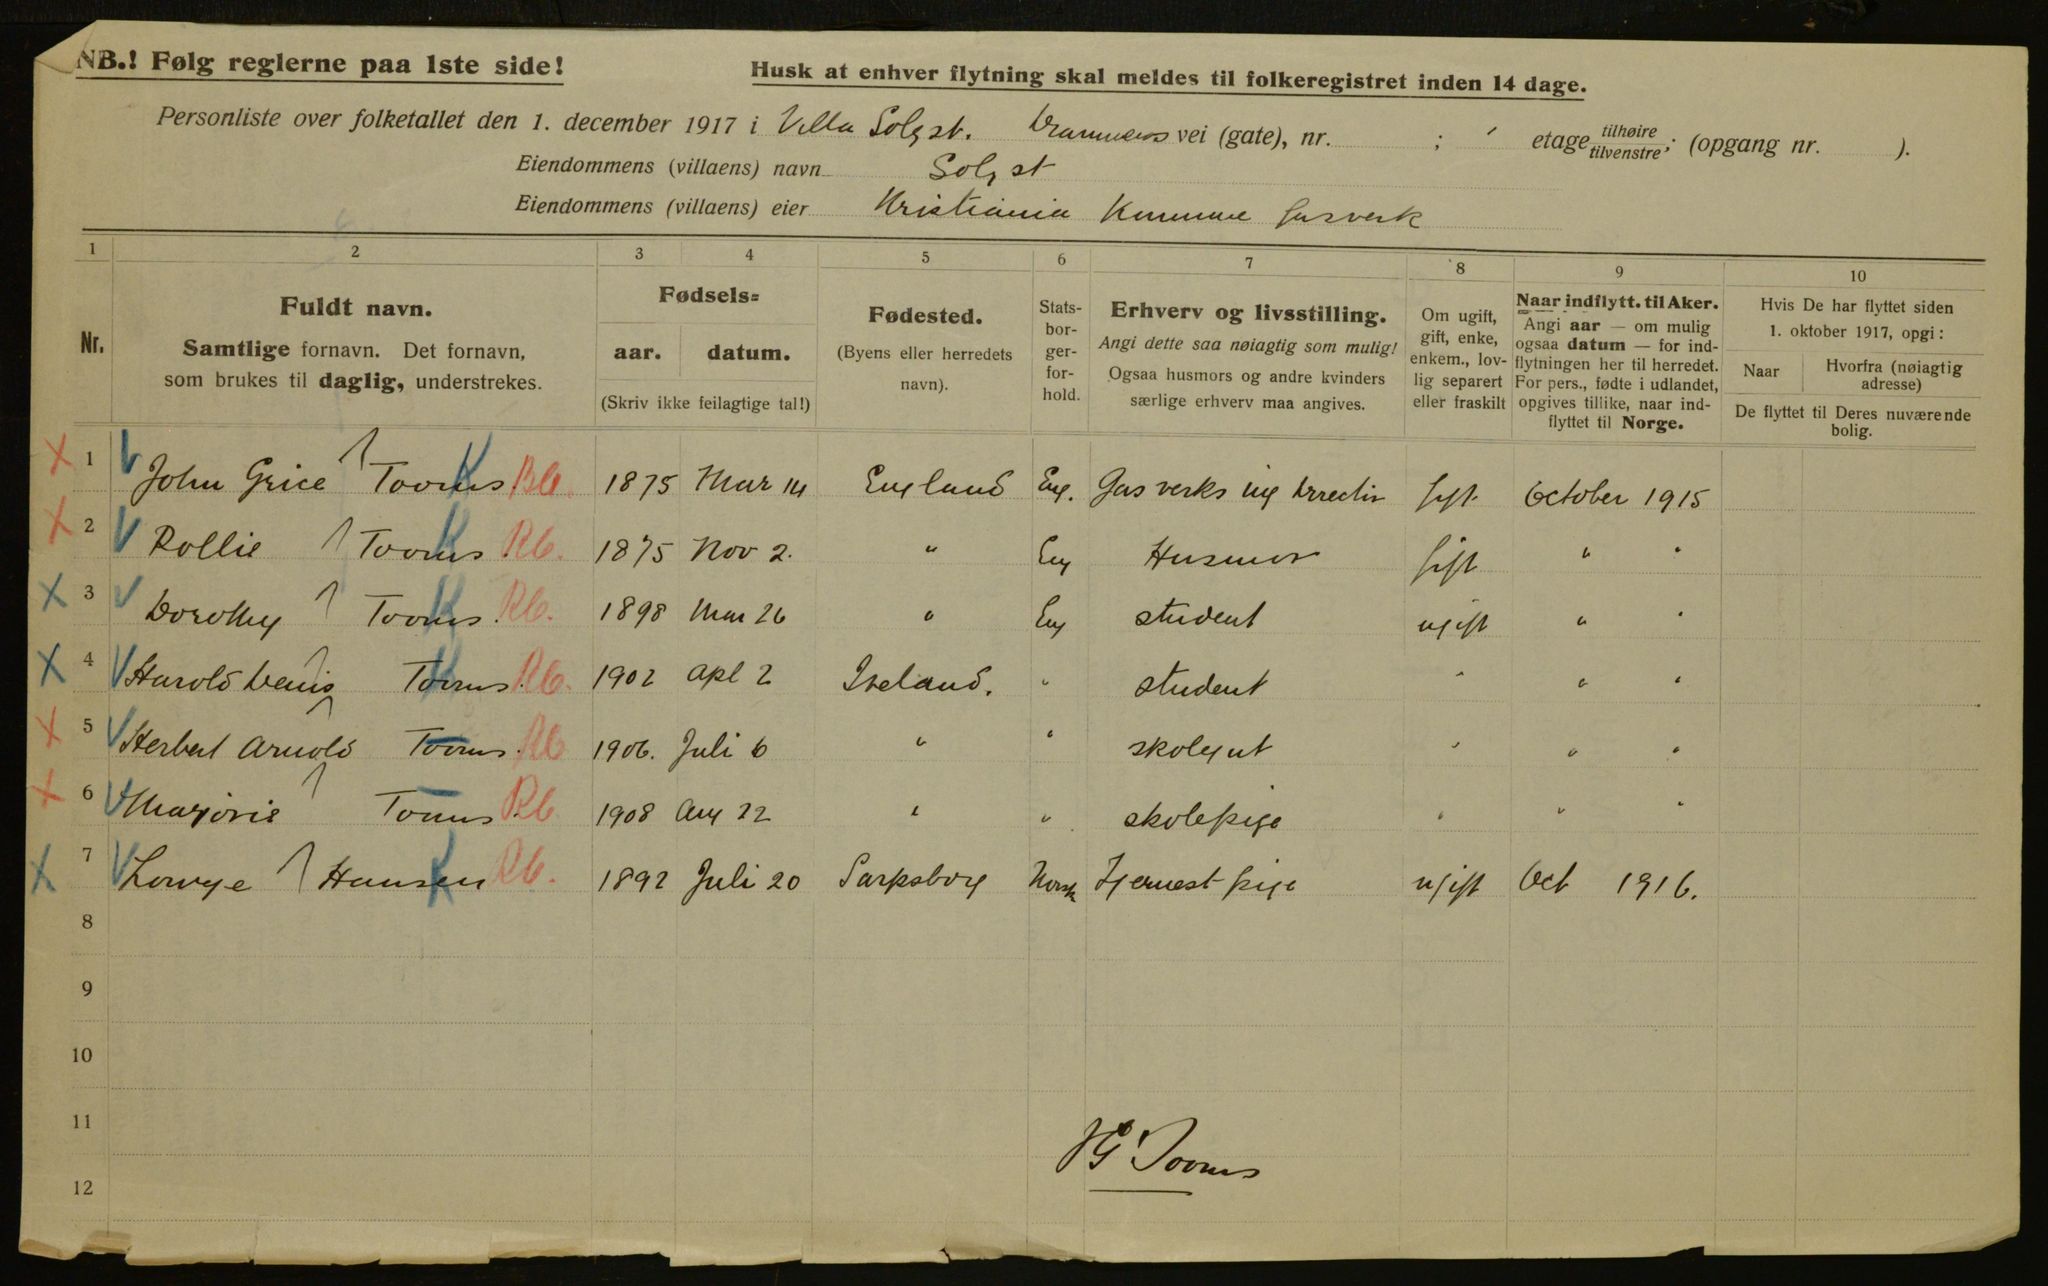 NB.! Følg reglerne paa 1ste side!
Husk at enhver flytning skal meldes til folkeregistret inden 14 dage.
Personliste over folketallet den 1. december 1917 i Villa Solgst. Drammens vei (gate), nr. ; etage tilhøire tilvenstre; (opgang nr. ).
Eiendommens (villaens) navn Solgst
Eiendommens (villaens) eier Kristiania Kommune Gasverk
1 2 3 4 5 6 7 8 9 10
Nr.
Fuldt navn.
Samtlige fornavn. Det fornavn,
som brukes til daglig, understrekes.
Fødsels=
aar. datum.
(Skriv ikke feilagtige tal!)
Fødested.
(Byens eller herredets
navn).
Stats-
bor-
ger-
for-
hold.
Erhverv og livsstilling.
Angi dette saa nøiagtig som mulig!
Ogsaa husmors og andre kvinders
særlige erhverv maa angives.
Om ugift,
gift, enke,
enkem., lov-
lig separert
eller fraskilt
Naar indflytt. til Aker.
Angi aar — om mulig
ogsaa datum — for ind-
flytningen her til herredet.
For pers., fødte i udlandet,
opgives tillike, naar ind-
flyttet til Norge.
Hvis De har flyttet siden
1. oktober 1917, opgi:
Naar
Hvorfra (nøiagtig
adresse)
De flyttet til Deres nuværende
bolig.
X 1 John Grice Tooms K Rb. 1875 Mar 14 England Eng. Gasverks ing Direktir gift October 1915
X 2 Rollie Tooms K Rb. 1875 Nov 2. " Eng Husmor gift " "
X 3 Dorothy Tooms K Rb. 1898 Mar 26 " Eng student ugift " "
X 4 Harold Denis Tooms K Rb. 1902 Apl 2 Ireland. " student " " "
X 5 Herbert Arnold Tooms Rb 1906. Juli 6 " " skolegut " " "
X 6 Marjorie Tooms Rb 1908 Aug 22 " " skolepige " " "
X 7 Lovuye Hansen K Rb. 1892 Juli 20 Sarpsborg Norsk Tjenestpige ugift Oct 1916.
8
9
10
11
12
JG Tooms